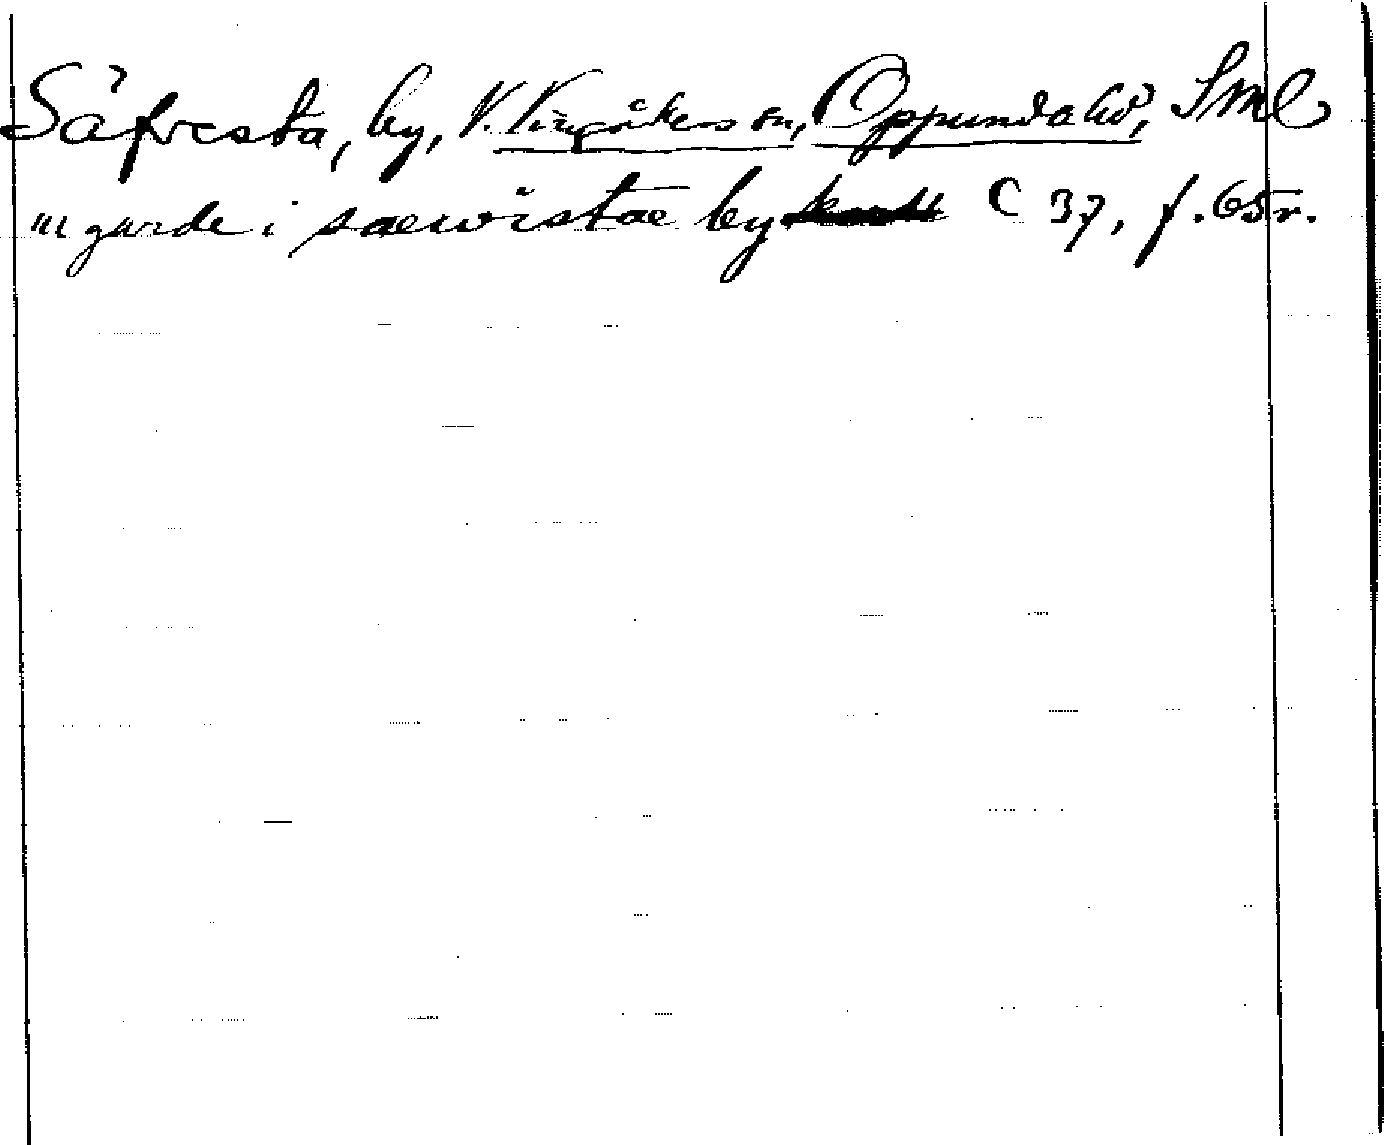 Såfvesta, by, V. Vingåkers sn, Oppunda hd, Sml
iii garde i saewistae by C 37, f. 65r.